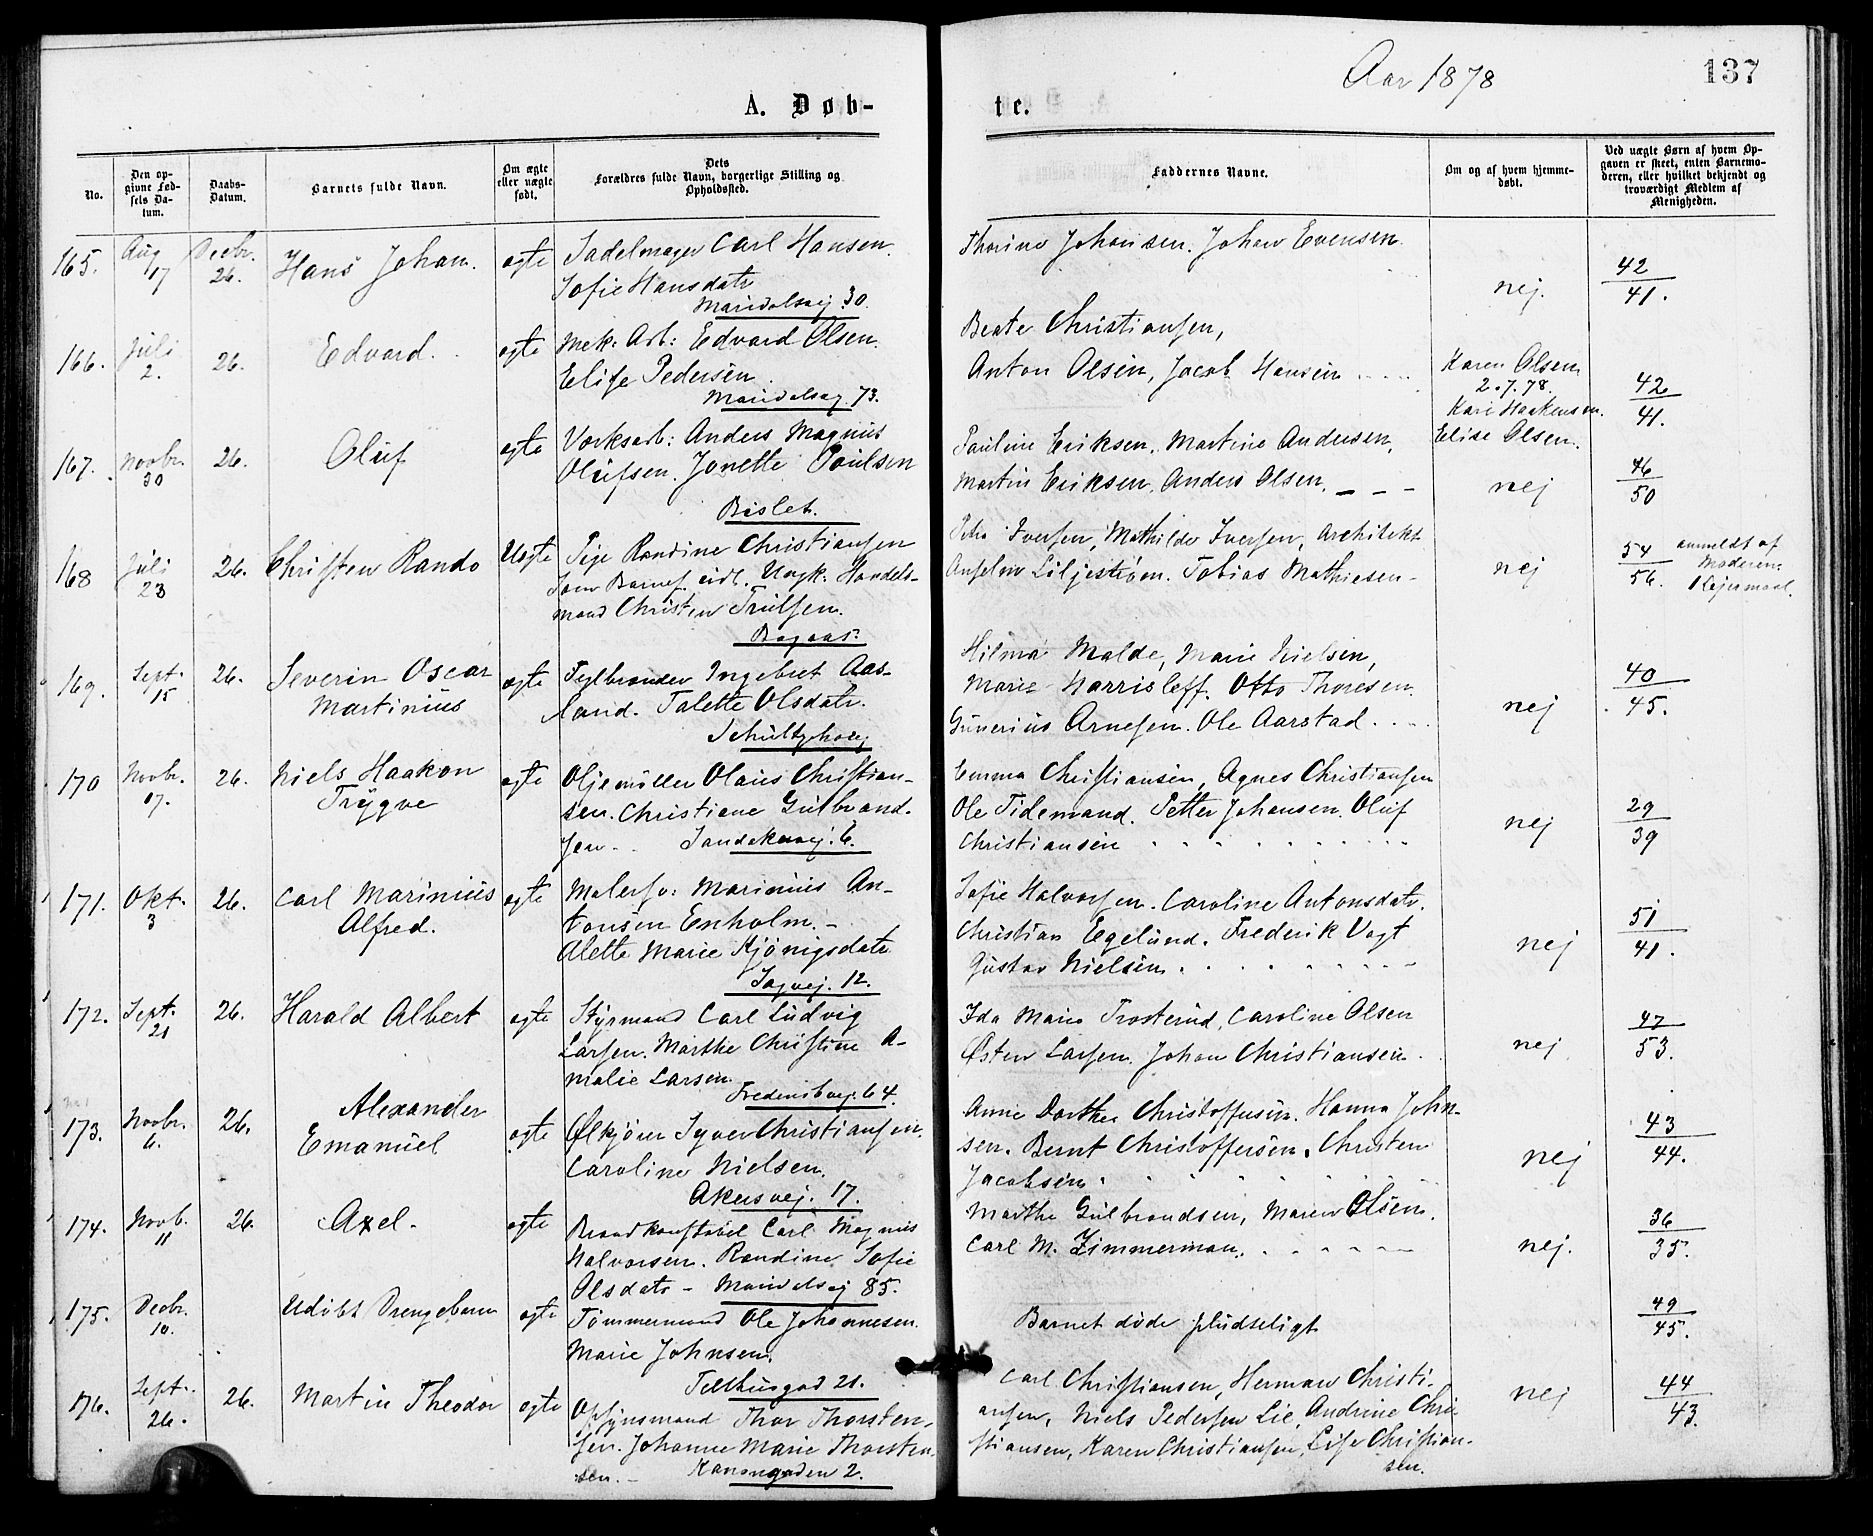 Aar 1878
137
A. Døb-
te.
No.
Den op-
givne Fød-
sels Da-
tum.
Daabs-
Datum.
Barnets fulde Navn.
Om ægte
eller uægte
født.
Dets
Forældres fulde Navn, borgerlige Stilling og
Opholdssted.
Faddernes Navne.
Om og af hvem hjemme-
døbt.
Ved uægte Børn af hvem Op-
gaven er skeet, enten Barnemo-
deren, eller hvilket bekjendt og
troværdigt Medlem af
Menigheden.
165. Aug 17 Decbr. 26. Hans Johan. ægte Sadelmager Carl Hansen.
Sofie Hansdatr
Maridalsvej 30.
Thorine Johansen. Johan Evensen.
nej. 42/41.
166. Juli 2. 26. Edvard. ægte Mek: Arb: Edvard Olsen.
Elise Pedersen.
Maridalsvej. 73.
Beate Christiansen,
Anton Olsen, Jacob Hansen
Karen Olsen
2.7.78.
Kari Haakensen.
Elise Olsen.
42/41.
167. Novbr. 30 26. Oluf ægte Værksarb: Anders Magnus
Olufsen. Jonette Poulsen
Bislet.
Pauline Eriksen, Martine Andersen,
Martin Eriksen, Anders Olsen. - - -
nej 46/50
168 Juli 23 26. Christen Rando Uægte Pige Randine Christiansen
Som Barnef. eidl. Ungk. Handels-
mand Christen Trulsen.
Bagaas.
Petra Iversen, Mathilde Iversen, Architekt
Anselm Liljestrøm. Tobias Mathiesen -
nej 54/56. anmeldt af
Moderen.
1 Lejermaal.
169. Sept. 15 26. Severin Oscar
Martinius
ægte Teglbrænder Ingebret Aas-
land. Talette Olsdatr.
Schultzehoug
Hilma Malde, Marie Nielsen,
Marie Harrisleff. Otto Thoresen.
Gunerius Arnesen. Ole Aarstad . . . .
nej 40/45.
170 Novbr. 17. 26. Niels Haakon
Trygve
ægte Oljemøller Olaus Christian-
sen. Christiane Gulbrand-
sen - . Sandakervej. 6.
Emma Christiansen, Agnes Christiansen
Ole Tidemand. Petter Johansen. Oluf
Christiansen
nej 29/39
171. Okt. 3 26. Carl Marinius
Alfred.
ægte Malersv: Marinius An-
tonsen Enholm. -
Alette Marie Kjønigsdatr
Sagvej. 12.
Sofie Halvorsen. Caroline Antonsdatr.
Christian Egelund. Frederik Vogt
Gustav Nielsen
nej 51/41.
172. Sept. 21 26. Harald Albert ægte Styrmand Carl Ludvig
Larsen. Marthe Christine A-
malie Larsen.
Fredensbvej. 64.
Ida Marie Trosterud, Caroline Olsen
Østen Larsen. Johan Christiansen
nej 47/53.
173. Novbr. 6. 26. Alexander
Emanuel
ægte Ølkjører Syver Christiansen.
Caroline Nielsen.
Akersvej. 17.
Anne Dorthea Christoffersen. Hanna John-
sen. Bernt Christoffersen. Christen
Jacobsen
nej 43/44.
174. Novb. 11 26. Axel. ægte Brandkonstabel Carl Magnus
Halvorsen. Randine Sofie
Olsdatr - Maridalsvej 85.
Marthe Gulbrandsen, Maren Olsen.
Carl M. Zimmerman.
nej. 36/35.
175. Decbr. 10. Udøbt Drengebarn ægte Tømmermand Ole Johannesen.
Marie Johnsen.
Telthusgad 21.
Barnet døde pludseligt
49/45.
176. Sept. 26. 26. Martin Theodor ægte Opsynsmand Thor Thorsten-
sen. Johanne Marie Thorsten-
sen. - Kanongaden 2.
Carl Christiansen, Herman Christi-
ansen, Niels Pedersen Lie, Andrine Chri-
stiansen, Karen Christiansen, Lise Christian-
sen.
nej 44/43.